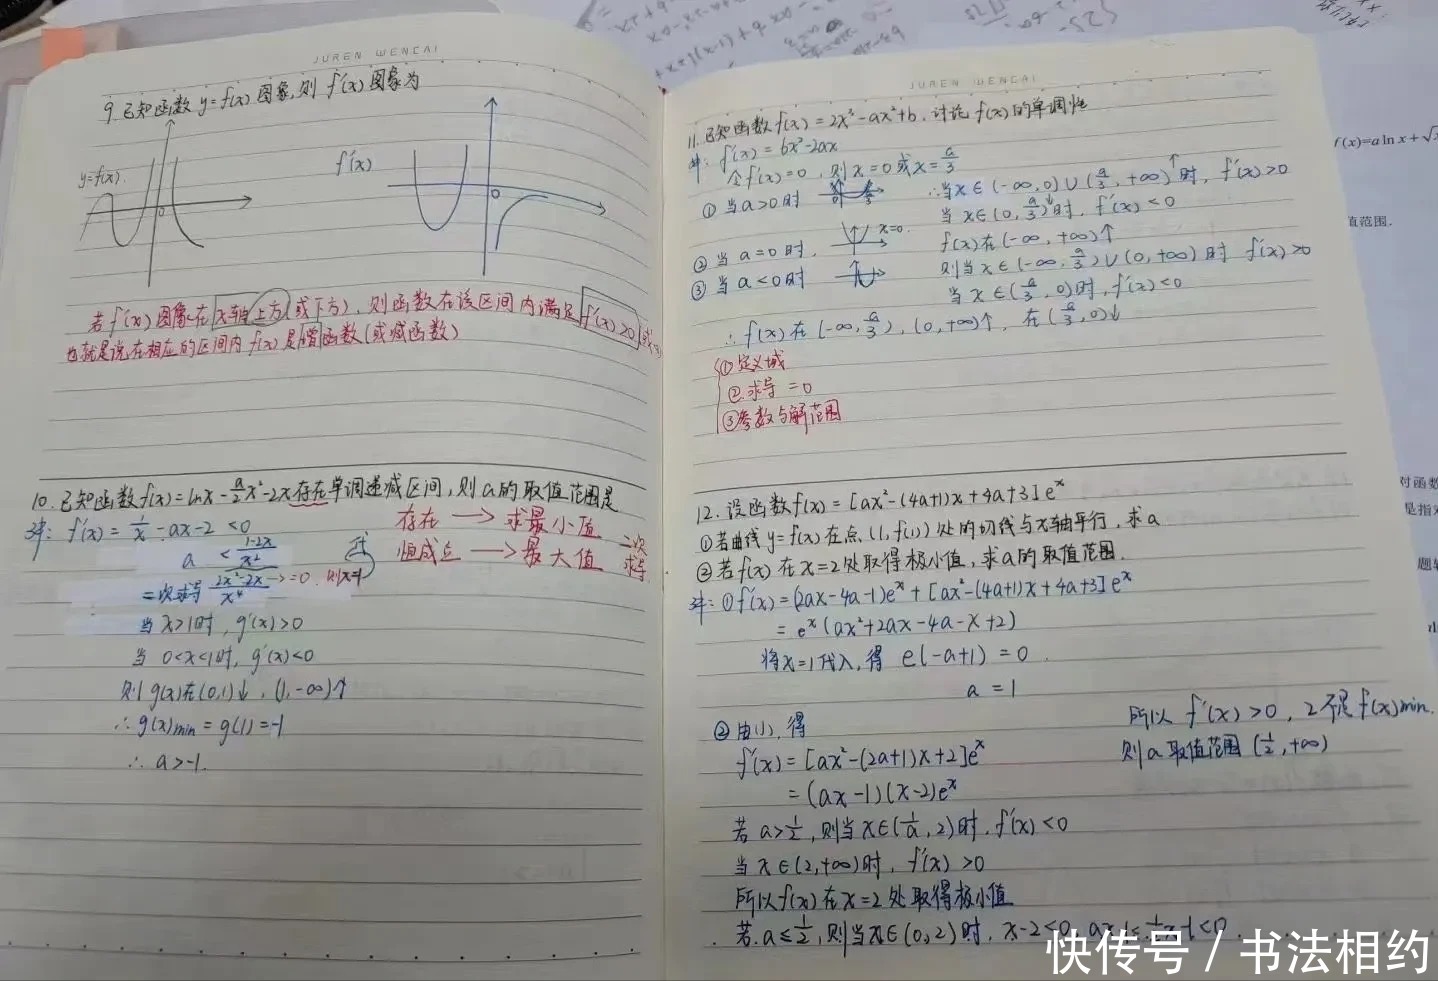 JUREN WENCAI
9.已知函数y=f(x)图象,则f'(x)图象为
y=f(x).
0
f'(x)
0
若f'(x)图象在x轴上方(或下方),则函数在该区间内满足f'(x)≥0
也就是说在相应的区间内f(x)是增函数(或减函数)
10.已知函数f(x)=lnx-a/2x²-2x存在单调递减区间,则a的取值范围是
f'(x)=1/x-ax-2<0
存在→求最小值
a<(1-2x)/x²
恒成立→最大值
二次求导
二次求导(2x²-2x)/x⁴→=0.则x=1
当x>1时,g'(x)>0
当0<x<1时,g'(x)<0
则g(x)在(0,1)↓,(1,-∞)↑
∴g(x)min=g(1)=-1
∴a>-1.
JUREN WENCAI
11.已知函数f(x)=2x³-ax²+b.讨论f(x)的单调性
解:f'(x)=6x²-2ax
令f'(x)=0,则x=0或x=a/3
①当a>0时
∴当x∈(-∞,0)∪(a/3,+∞)↑时,f'(x)>0
当x∈(0,a/3)↓时,f'(x)<0
②当a=0时,
x=0.
f(x)在(-∞,+∞)↑
③当a<0时
则当x∈(-∞,a/3)∪(0,+∞)时f'(x)>0
当x∈(a/3,0)时,f'(x)<0
∴f(x)在(-∞,a/3),(0,+∞)↑,在(a/3,0)↓
①定义域
②求导=0
③参数与解范围
12.设函数f(x)=[ax²-(4a+1)x+4a+3]eˣ
①若曲线y=f(x)在点(1,f(1))处的切线与x轴平行,求a
②若f(x)在x=2处取得极小值,求a的取值范围.
解:①f'(x)=(2ax-4a-1)eˣ+[ax²-(4a+1)x+4a+3]eˣ
=eˣ(ax²+2ax-4a-x+2)
将x=1代入,得e(-a+1)=0.
a=1
②由(1),得
f'(x)=[ax²-(2a+1)x+2]eˣ
=(ax-1)(x-2)eˣ
若a>1/2,则当x∈(1/a,2)时,f'(x)<0
当x∈(2,+∞)时,f'(x)>0
所以f(x)在x=2处取得极小值
若a≤1/2,则当x∈(0,2)时,x-2<0,ax-1≤1/2x-1<0
所以f'(x)>0,2不是f(x)min.
则a取值范围(1/2,+∞)
f(x)=a ln x+√x
值范围.
对函数
快传号/书法相约